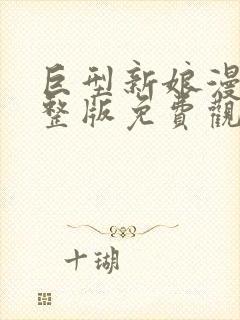 巨型新娘漫
整版免費觀
十瑚